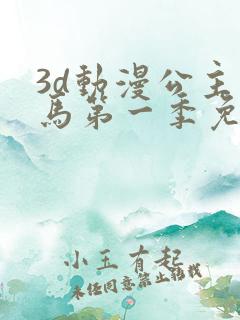 3d動漫公主
馬第一季免
小玉有起
未经同意禁止转载